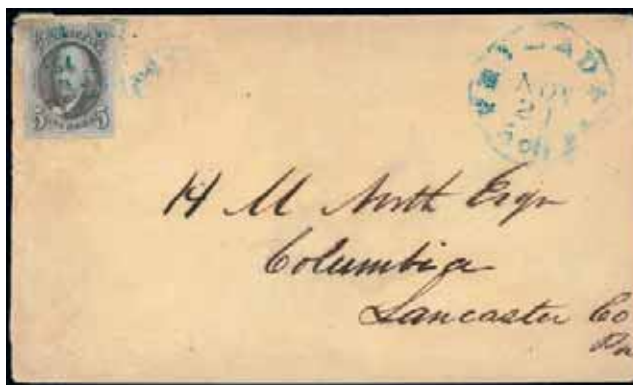 5 5
21
H M North Esqr
Columbia
Lancaster Co
Pa